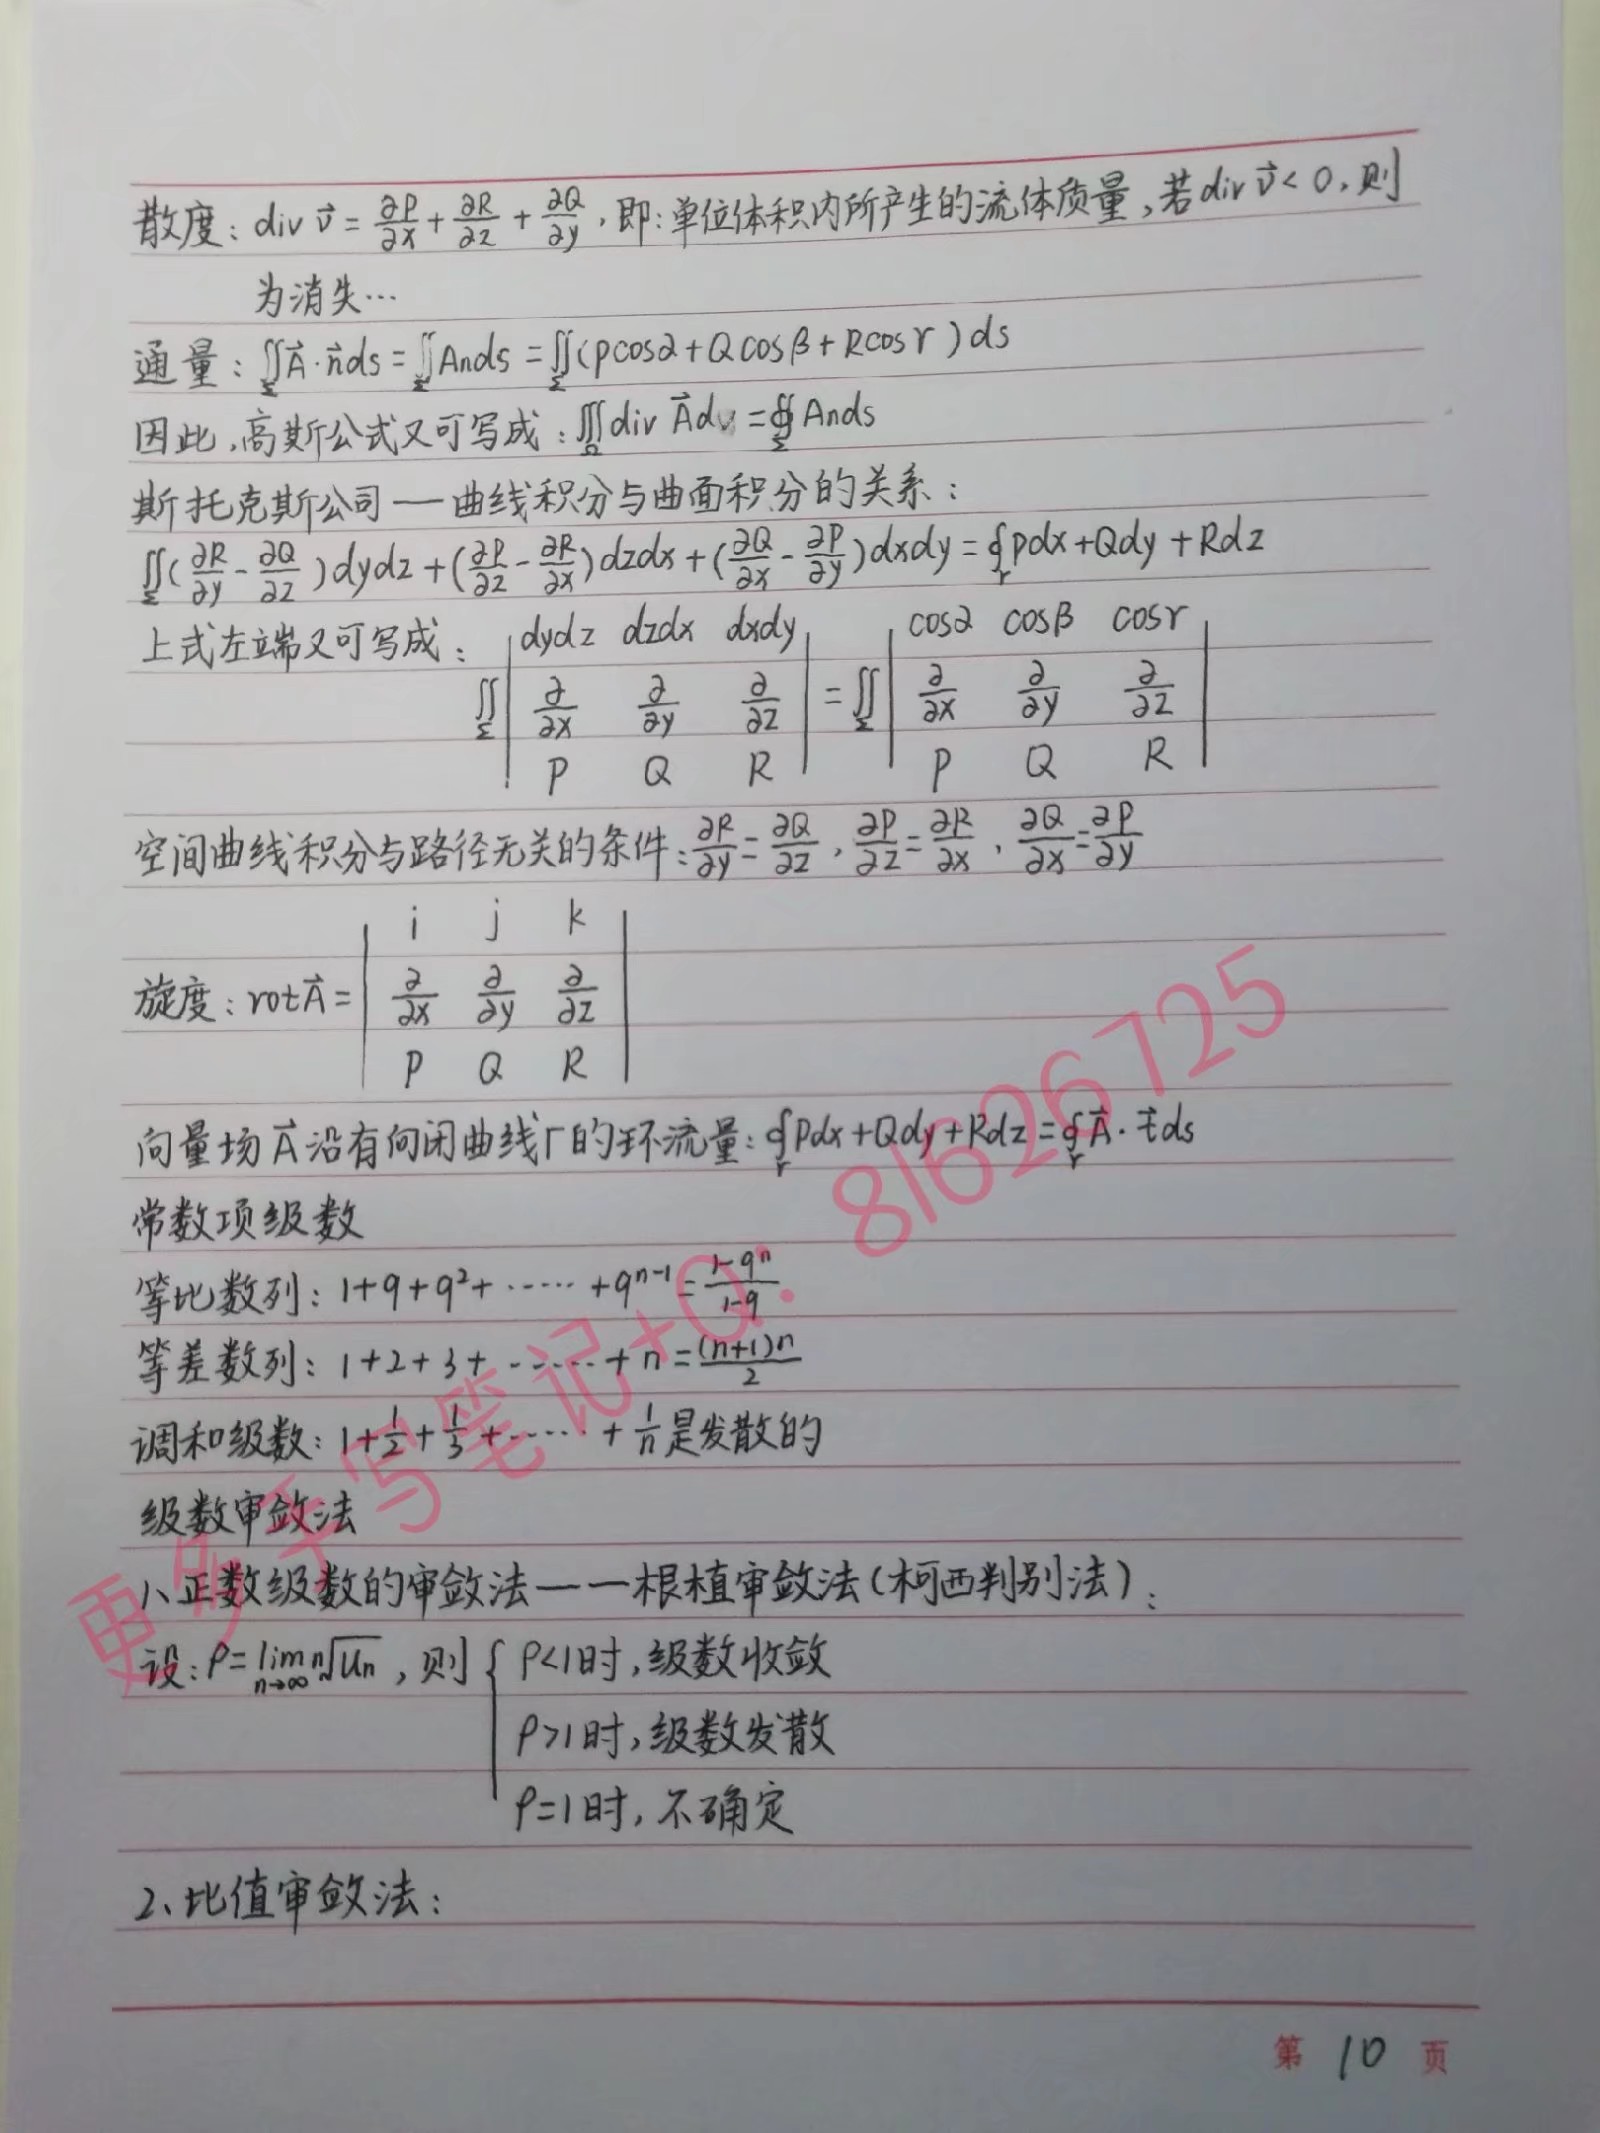 散度：div v⃗ = ∂P/∂x + ∂R/∂z + ∂Q/∂y，即：单位体积内所产生的流体质量，若div v⃗ < 0，则
为消失…
通量：∬_Σ A⃗·n⃗ds = ∬_Σ Ands = ∬_Σ (Pcosα+Qcosβ+Rcosγ)ds
因此，高斯公式又可写成：∭_Ω div A⃗dv = ∯_Σ Ands
斯托克斯公司——曲线积分与曲面积分的关系：
∬_Σ (∂R/∂y - ∂Q/∂z)dydz + (∂P/∂z - ∂R/∂x)dzdx + (∂Q/∂x - ∂P/∂y)dxdy = ∮_Γ Pdx+Qdy+Rdz
上式左端又可写成：∬_Σ | dydz dzdx dxdy | = ∬_Σ | cosα cosβ cosγ |
| ∂/∂x ∂/∂y ∂/∂z | | ∂/∂x ∂/∂y ∂/∂z |
| P Q R | | P Q R |
空间曲线积分与路径无关的条件：∂R/∂y = ∂Q/∂z，∂P/∂z = ∂R/∂x，∂Q/∂x = ∂P/∂y
| i j k |
旋度：rotA⃗ = | ∂/∂x ∂/∂y ∂/∂z |
| P Q R |
向量场A⃗沿有向闭曲线Γ的环流量：∮_Γ Pdx+Qdy+Rdz = ∮_Γ A⃗·t⃗ds
常数项级数
等比数列：1+q+q²+……+qⁿ⁻¹ = (1-qⁿ)/(1-q)
等差数列：1+2+3+……+n = (n+1)n/2
调和级数：1+1/2+1/3+……+1/n是发散的
级数审敛法
1、正数级数的审敛法——根植审敛法(柯西判别法)：
设：ρ = lim_{n→∞} ⁿ√Uₙ，则{ ρ<1时，级数收敛
ρ>1时，级数发散
ρ=1时，不确定
2、比值审敛法：
第 10 页
更多手写笔记+Q: 81626725